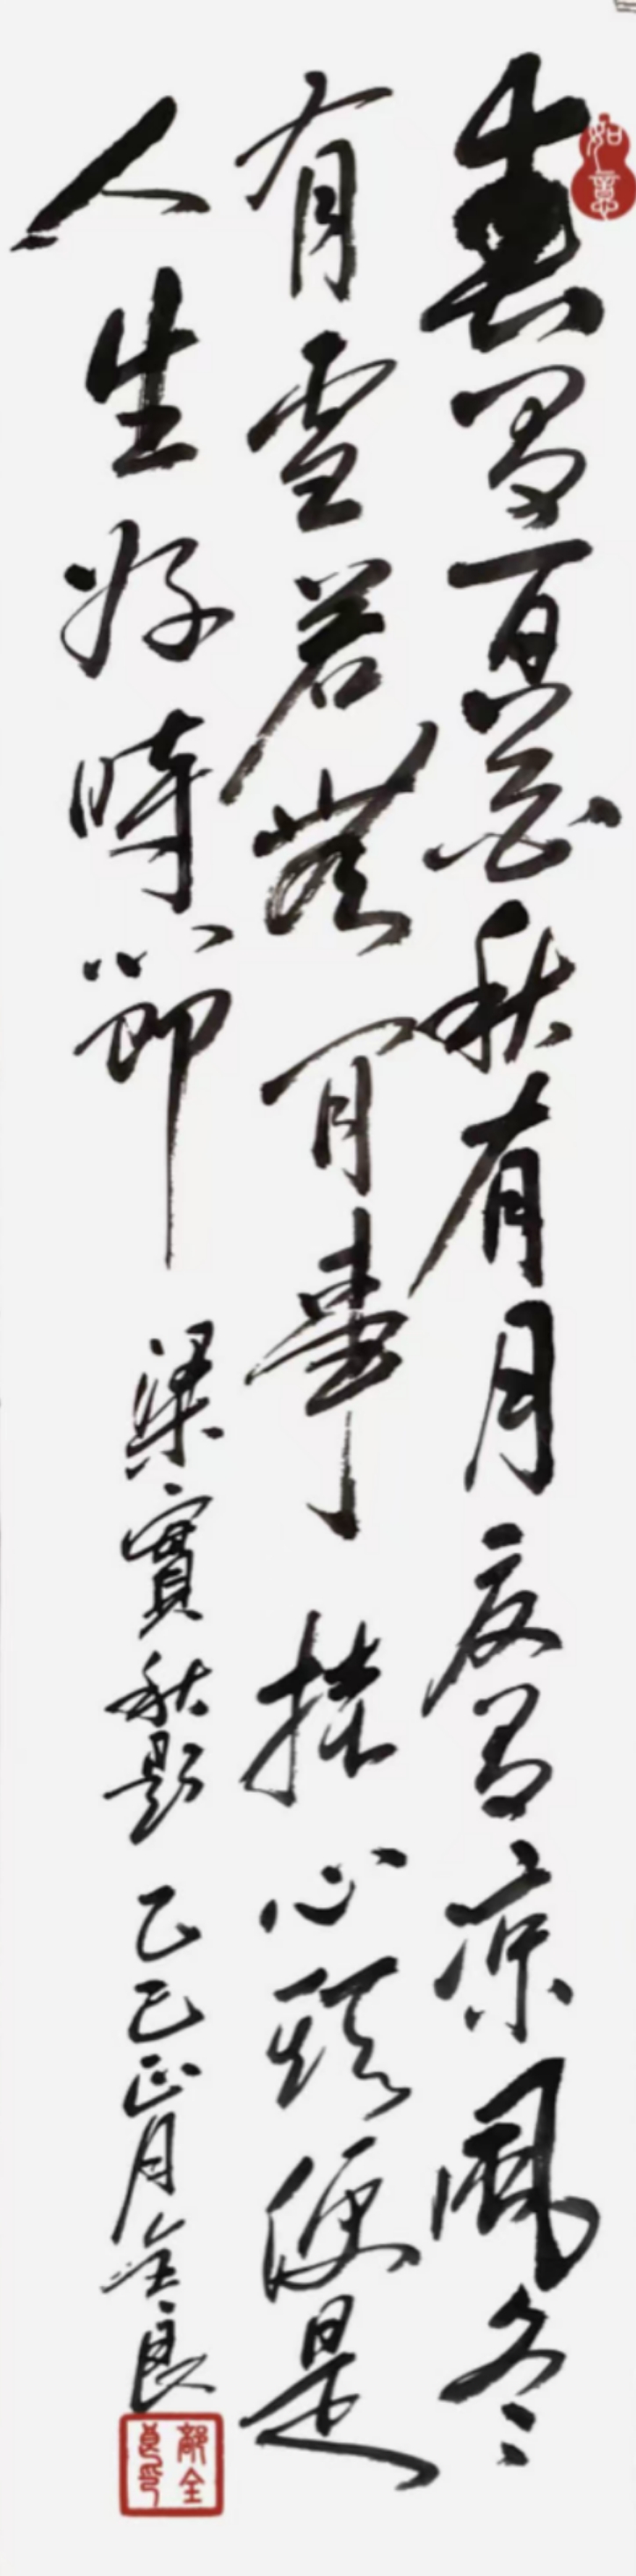 如意
春有百花秋有月夏有凉風冬
有雪若無閒事挂心頭便是
人生好時節 梁實秋題 乙巳正月全良
全良印